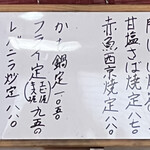 甘塩さば焼定 八七〇
赤魚西京焼定 八八〇
かき鍋定 一〇五〇
フライ定 九五〇
レバニラ炒定 八八〇